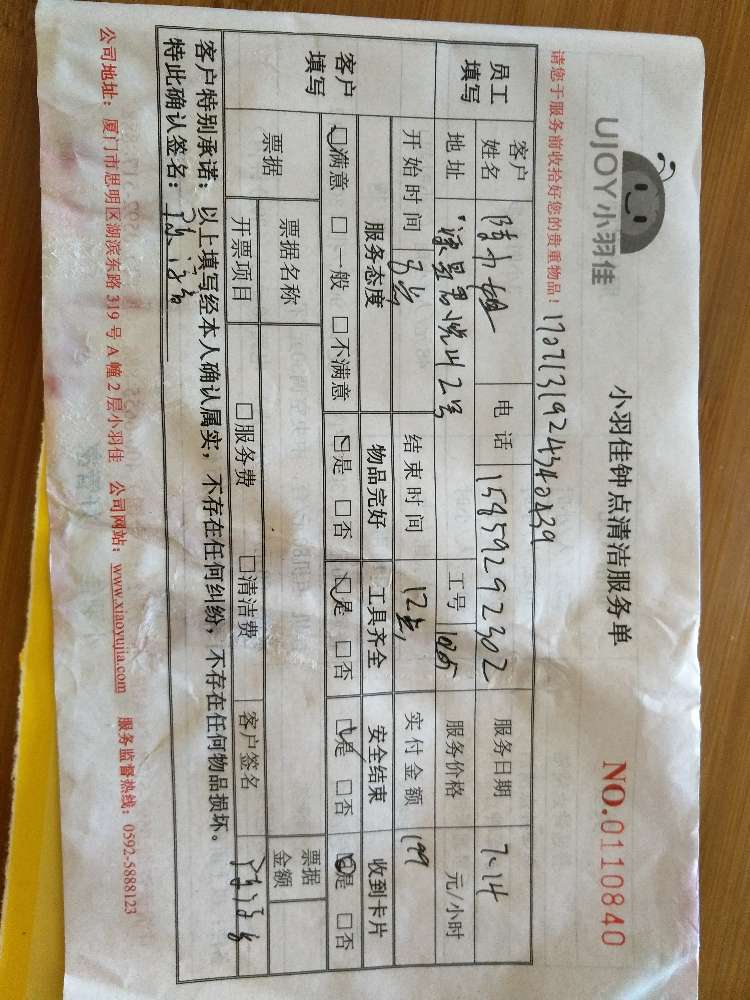 UJOY小羽佳
小羽佳钟点清洁服务单
NO.0110840
请您于服务前收拾好您的贵重物品!
员工填写
客户姓名 陈小姐 电话 15859292302 服务日期 7.14
地址 工号 1085 服务价格 元/小时
开始时间 结束时间 12点 实付金额 199
客户填写
服务态度 物品完好 工具齐全 安全结束 收到卡片
☑满意 □一般 □不满意 ☑是 □否 ☑是 □否 ☑是 □否 ☑是 □否
票据 票据名称 票据金额
开票项目 □服务费 □清洁费 客户签名
客户特别承诺:以上填写经本人确认属实,不存在任何纠纷,不存在任何物品损坏。
特此确认签名:
公司地址:厦门市思明区湖滨东路319号A幢2层小羽佳 公司网站:www.xiaoyujia.com 服务监督热线:0592-5888123